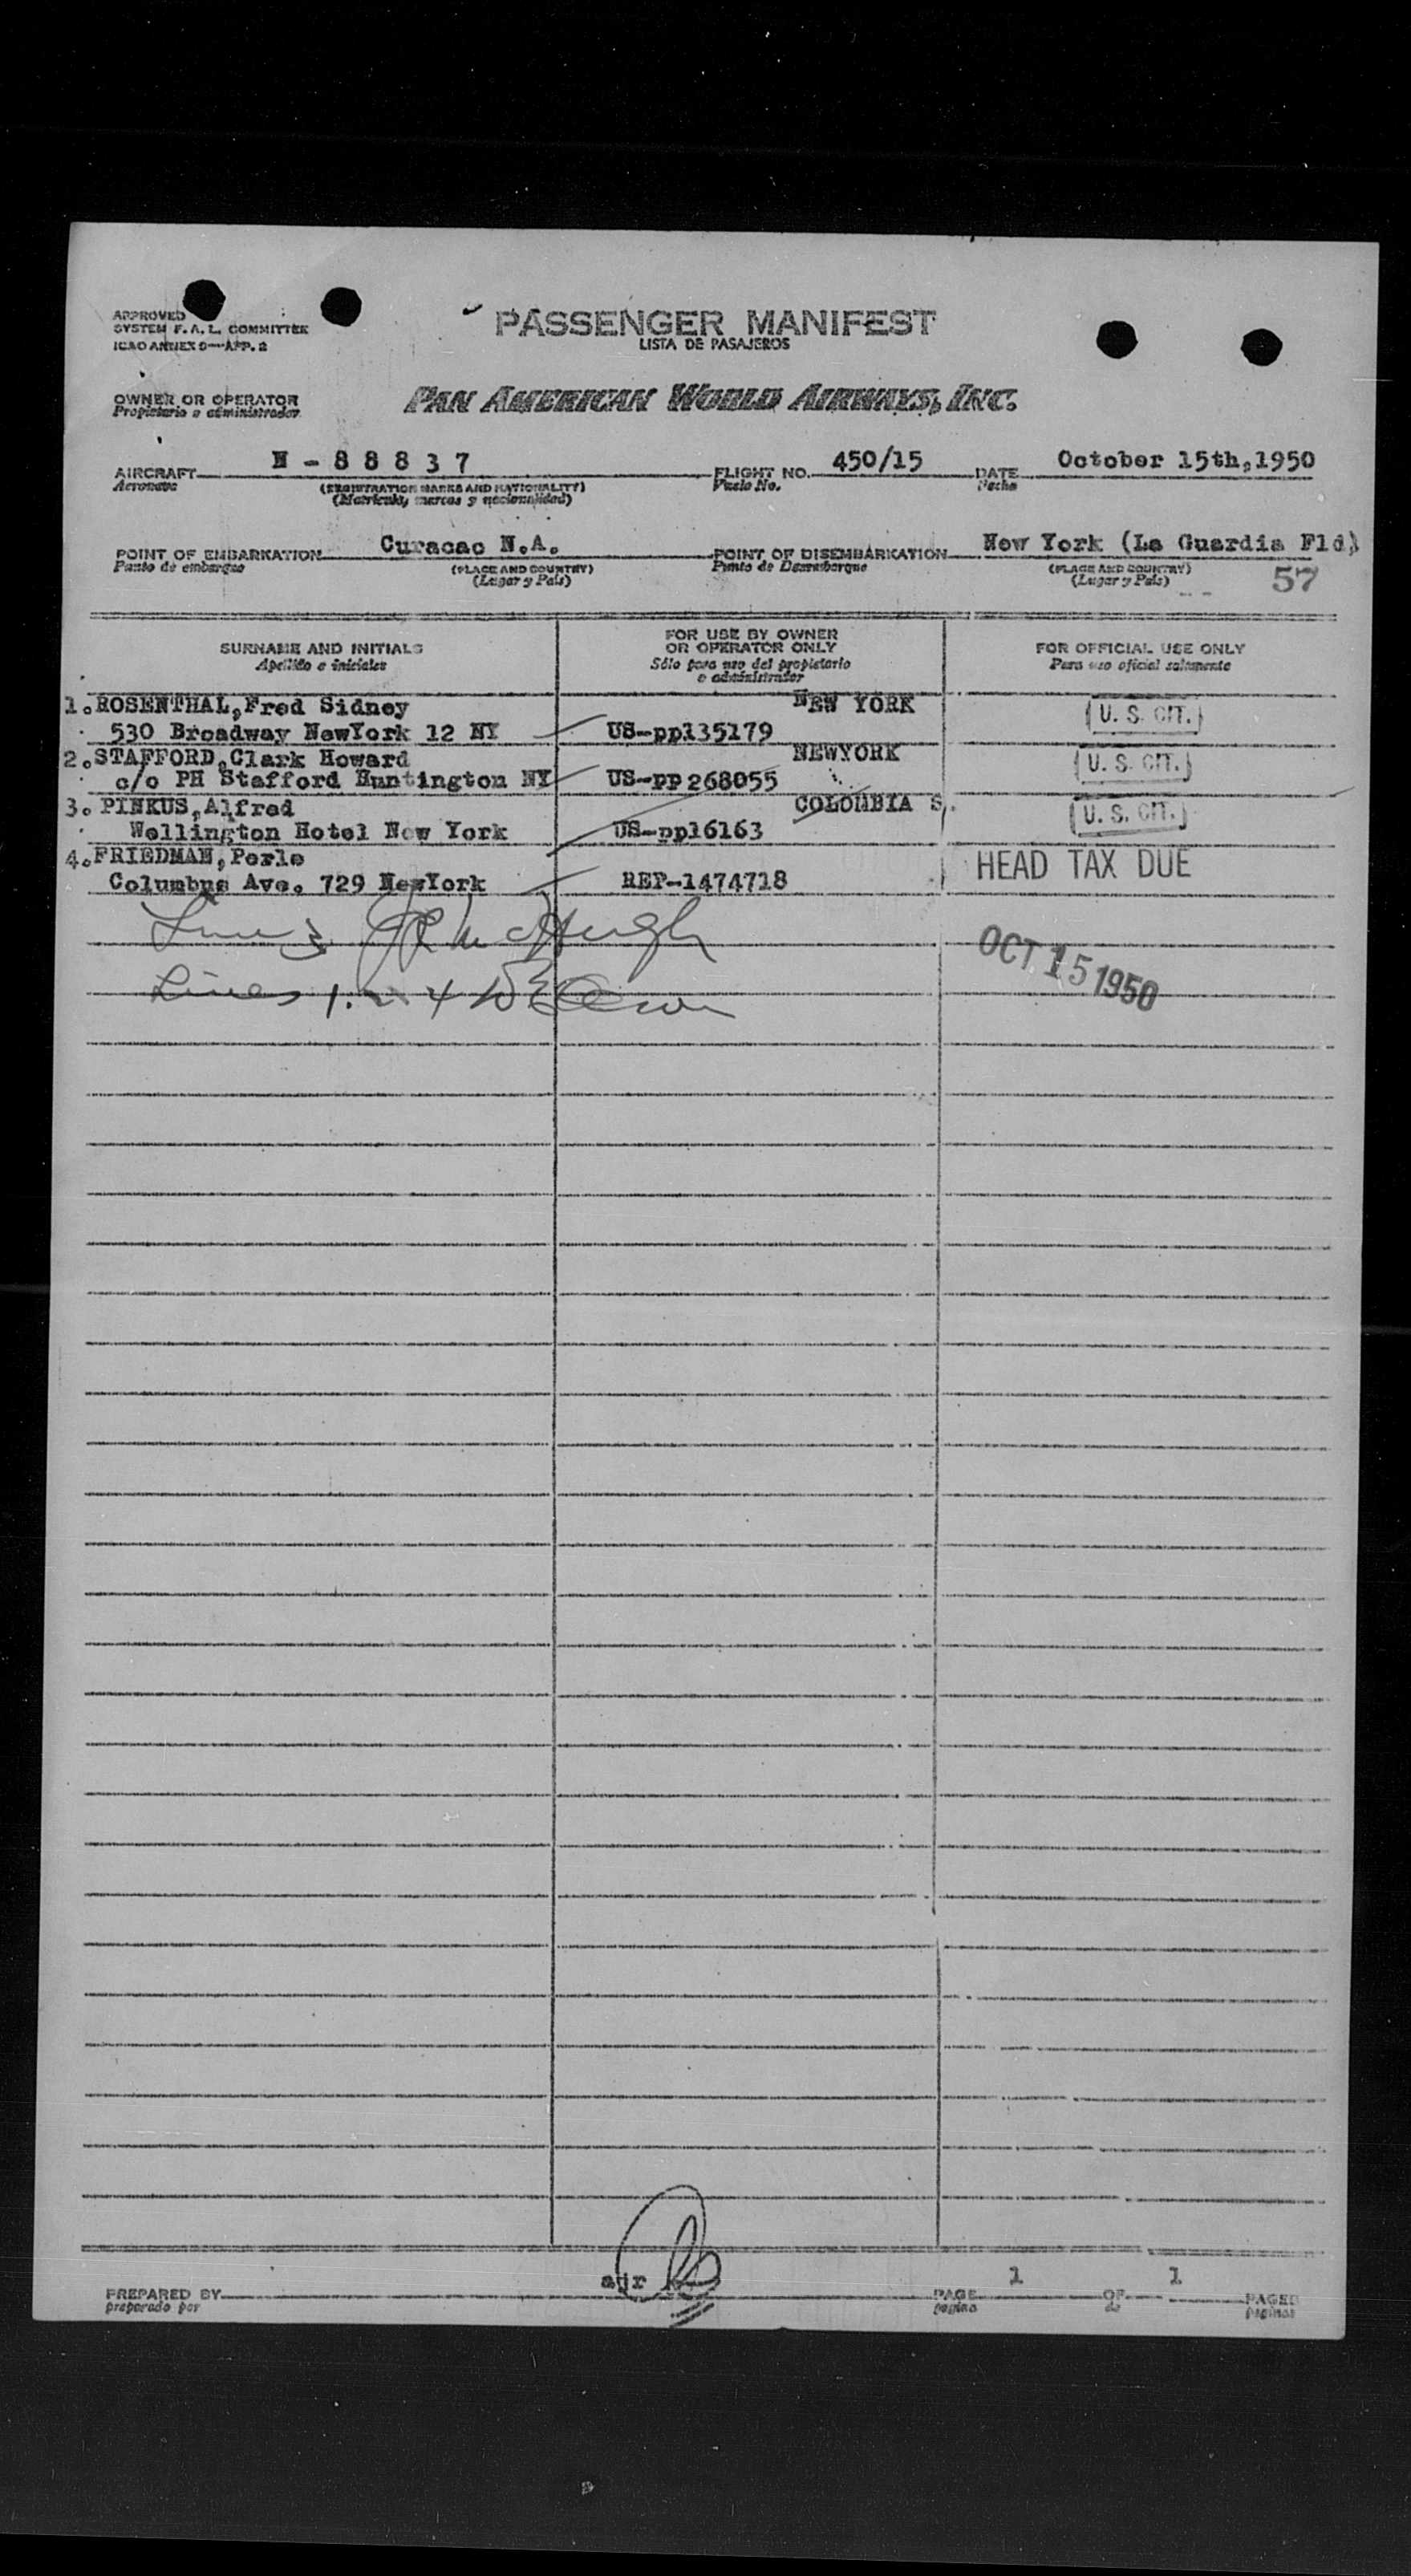 APPROVED
SYSTEM F. A. L. COMMITTEE
ICAO ANNEX 9—APP. 2
PASSENGER MANIFEST
LISTA DE PASAJEROS
OWNER OR OPERATOR
Propietario o administrador
PAN AMERICAN WORLD AIRWAYS, INC.
AIRCRAFT N - 8 8 8 3 7 FLIGHT NO. 450/15 DATE October 15th,1950
Aeronave (REGISTRATION MARKS AND NATIONALITY) Vuelo No. Fecha
(Matricula, marcas y nacionalidad)
POINT OF EMBARKATION Curacao N.A. POINT OF DISEMBARKATION New York (La Guardia Fld)
Punto de embarque (PLACE AND COUNTRY) Punto de Desembarque (PLACE AND COUNTRY)
(Lugar y País) (Lugar y País) 57
SURNAME AND INITIALS
Apellido e iniciales
FOR USE BY OWNER
OR OPERATOR ONLY
Sólo para uso del propietario
o administrador
FOR OFFICIAL USE ONLY
Para uso oficial solamente
1.ROSENTHAL,Fred Sidney NEW YORK
530 Broadway NewYork 12 NY US-pp135179 U. S. CIT.
2.STAFFORD,Clark Howard NEWYORK
c/o PH Stafford Huntington NY US-pp268055 U. S. CIT.
3. PINKUS,Alfred COLOMBIA S.
Wellington Hotel New York US-pp16163 U. S. CIT.
4.FRIEDMAN,Perle HEAD TAX DUE
Columbus Ave. 729 NewYork REP-1474718
Line 3 McHugh
OCT 15 1950
Lines 1. 2 4
PREPARED BY ajr PAGE 1 OF 1 PAGES
preparado por pagina de paginas